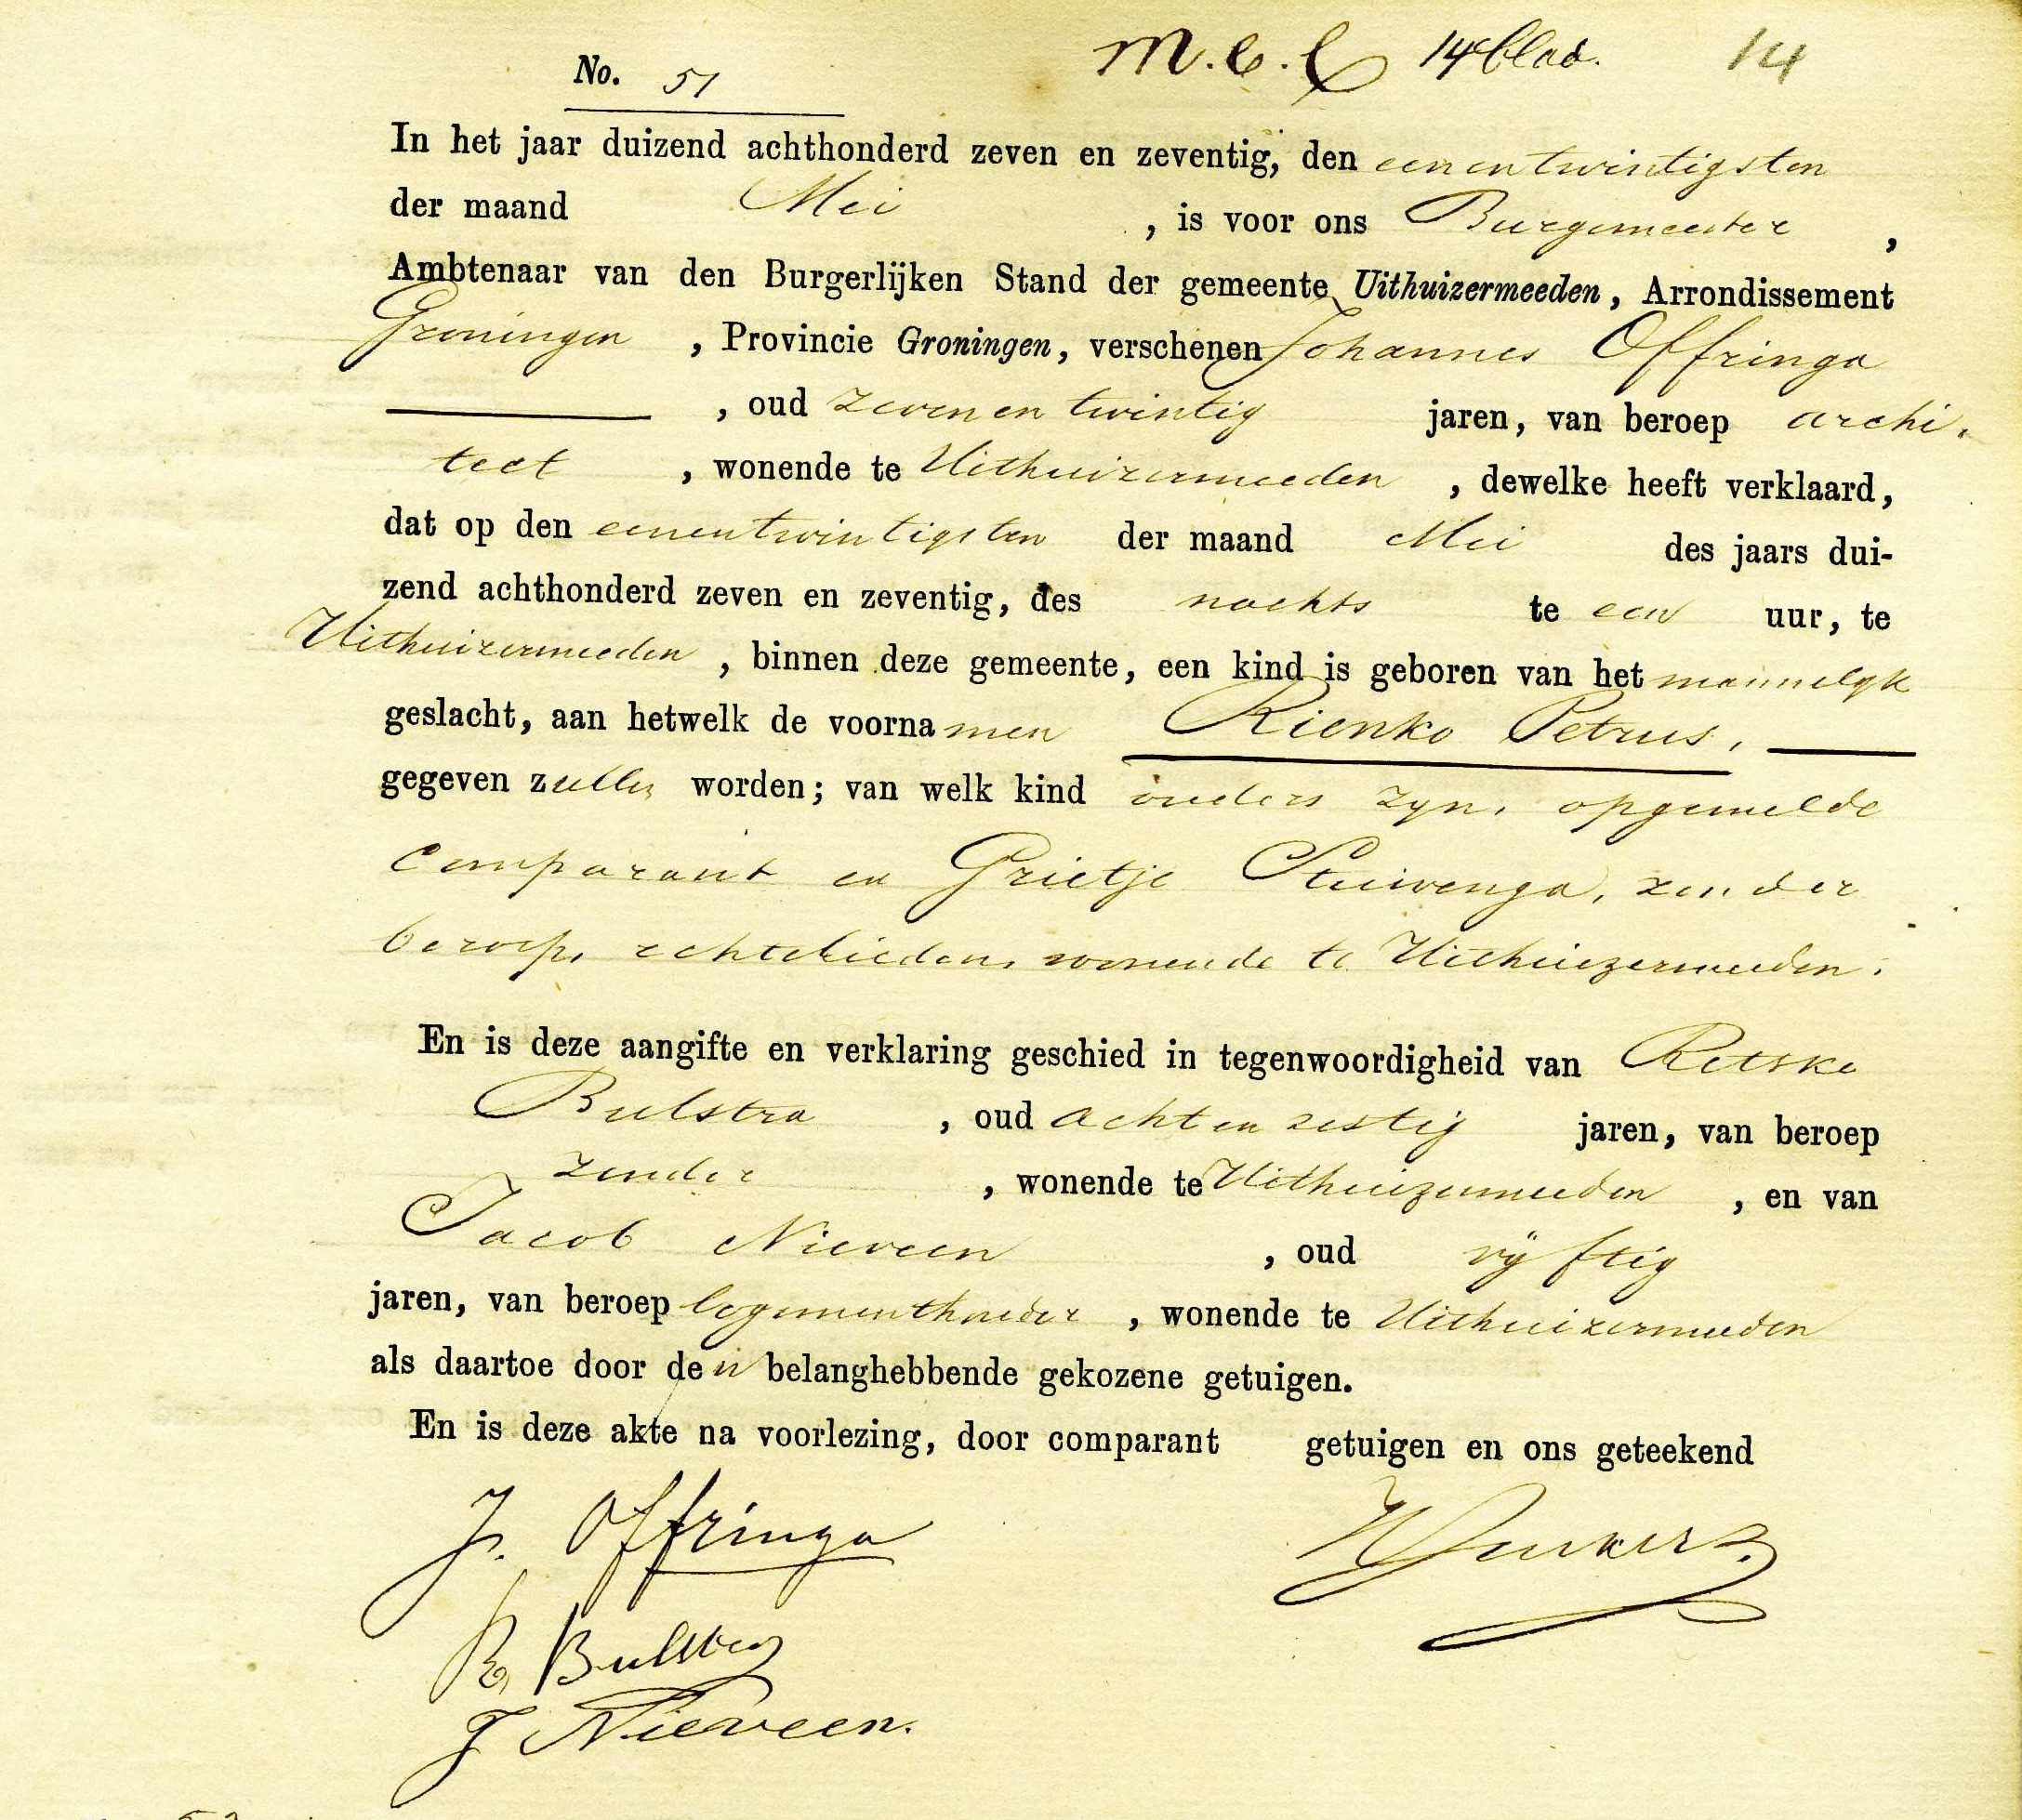 No. 51
14e blad. 14
In het jaar duizend achthonderd zeven en zeventig, den een en twintigsten
der maand Mei , is voor ons Burgemeester ,
Ambtenaar van den Burgerlijken Stand der gemeente Uithuizermeeden, Arrondissement
Groningen , Provincie Groningen, verschenen Johannes Offringa
, oud zeven en twintig jaren, van beroep archi-
tect , wonende te Uithuizermeeden , dewelke heeft verklaard,
dat op den eenentwintigsten der maand Mei des jaars dui-
zend achthonderd zeven en zeventig, des nachts te een uur, te
Uithuizermeeden , binnen deze gemeente, een kind is geboren van het mannelyk
geslacht, aan hetwelk de voornamen Rienko Petrus,
gegeven zullen worden; van welk kind ouders zyn, opgemelde
comparant en Grietje Stuivenga, zonder
beroep, echtelieden, wonende te Uithuizermeeden.
En is deze aangifte en verklaring geschied in tegenwoordigheid van Retske
Bulstra , oud acht en zestig jaren, van beroep
zonder , wonende te Uithuizermeeden , en van
Jacob Nieveen , oud vyftig
jaren, van beroep logementhouder , wonende te Uithuizermeeden
als daartoe door den belanghebbende gekozene getuigen.
En is deze akte na voorlezing, door comparant getuigen en ons geteekend
J. Offringa
R. Bulstra
J Nieveen.